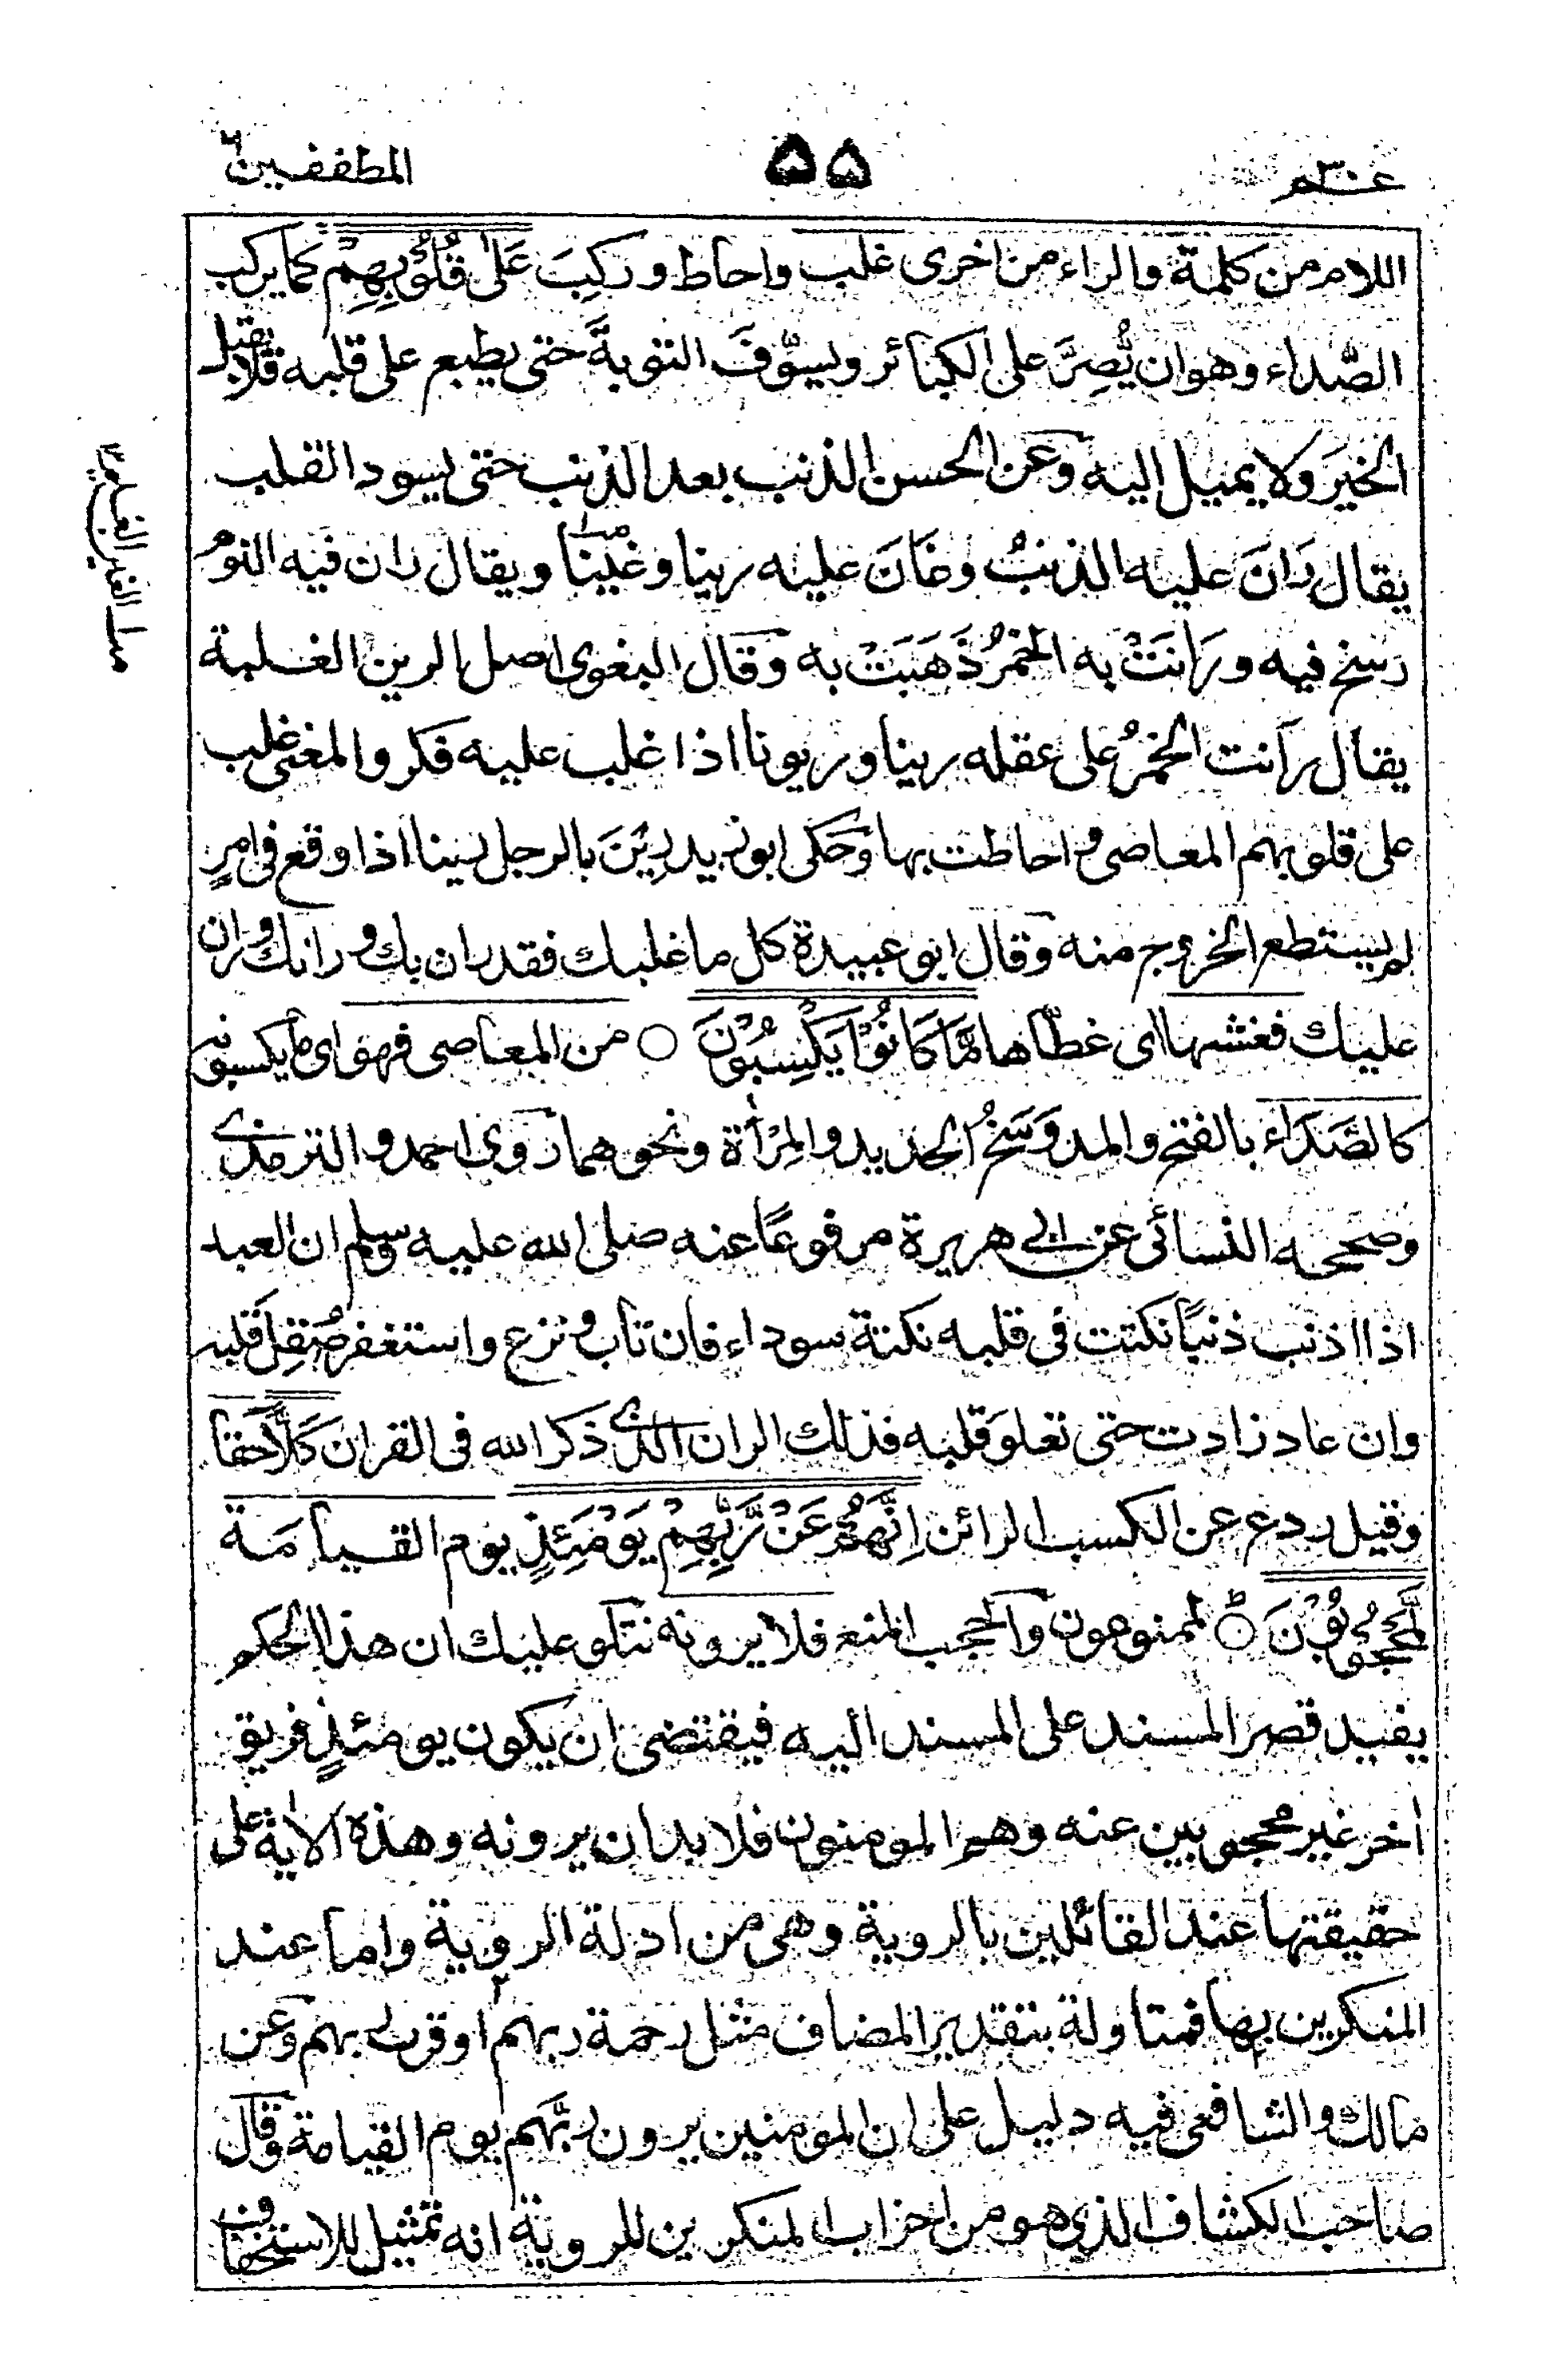 عم ٣٠
٥٥
المطففين
اللام من كلمة والراء من اخرى غلب واحاط وركِبَ عَلٰى قُلُوْبِهِمْ كما يركب
الصّداء وهو ان يُّصِرَّ على الكبائر ويسوّفَ التوبةَ حتى يطبع على قلبه فلا يقبل
الخيرَ ولا يميل اليه وعن الحسن الذنب بعد الذنب حتى يسود القلب
يقال رَانَ عليه الذنبُ وغَانَ عليه رينا وغَيْنًا ويقال ران فيه النوم
رسخ فيه ورَانَتْ به الخمرُ ذَهَبَتْ به وقال البغوى اصل الرين الغلبة
يقال رانت الخمرُ على عقله رينا وريونا اذا غلب عليه فكر والمعنى غلب
على قلوبهم المعاصى واحاطت بها وحكى ابو زيد رِيْنَ بالرجل رينا اذا وقع فى امرٍ
لم يستطع الخروج منه وقال ابو عبيدة كل ما غلبك فقد ران بك و رانك وران
عليك فغشيها اى غطّاها مَّا كَانُوْا يَكْسِبُوْنَ ○ من المعاصى فهو اى ما يكسبون
كالصَدَاء بالفتح والمد وَسَخُ الحديد والمِرْأة ونحوهما روى احمد والترمذى
وصححه النسائى عن ابى هريرة مرفوعًا عنه صلى الله عليه وسلم ان العبد
اذا اذنب ذنبًا نكتت فى قلبه نكتة سوداء فان تاب ونزع واستغفر صُقِلَ قلبه
وان عاد زادت حتى تعلوَ قلبه فذلك الران الذى ذكر الله فى القران كَلَّا حقا
وقيل ردع عن الكسب الرائن اِنَّهُمْ عَنْ رَّبِّهِمْ يَوْمَئِذٍ يوم القيامة
لَّمَحْجُوْبُوْنَ ○ لممنوعون والحجب المنع فلا يرونه نتلو عليك ان هذا الحكم
يفيد قصر المسند على المسند اليه فيقتضى ان يكون يومئذٍ فريق
اخر غير محجوبين عنه وهم المومنون فلا بد ان يرونه وهذه الاية على
حقيقتها عند القائلين بالروية وهى من ادلة الروية واما عند
المنكرين بها فمتاولة بتقدير المضاف مثل رحمة ربهم او قرب ربهم وعن
مالك والشافعى فيه دليل على ان المومنين يرون ربّهم يوم القيامة وقال
صاحب الكشاف الذى هو من احزاب المنكرين للروية انه تمثيل للاستخفاف